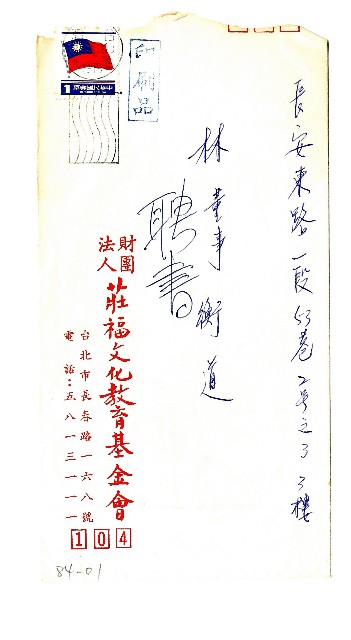 長安東路一段53巷2号之3 3樓
林董事衡道
聘書
印刷品
1 中華民國郵票
財團法人
莊福文化教育基金會
台北市長春路一六八號
電話：五八一三一一一
104
84-01